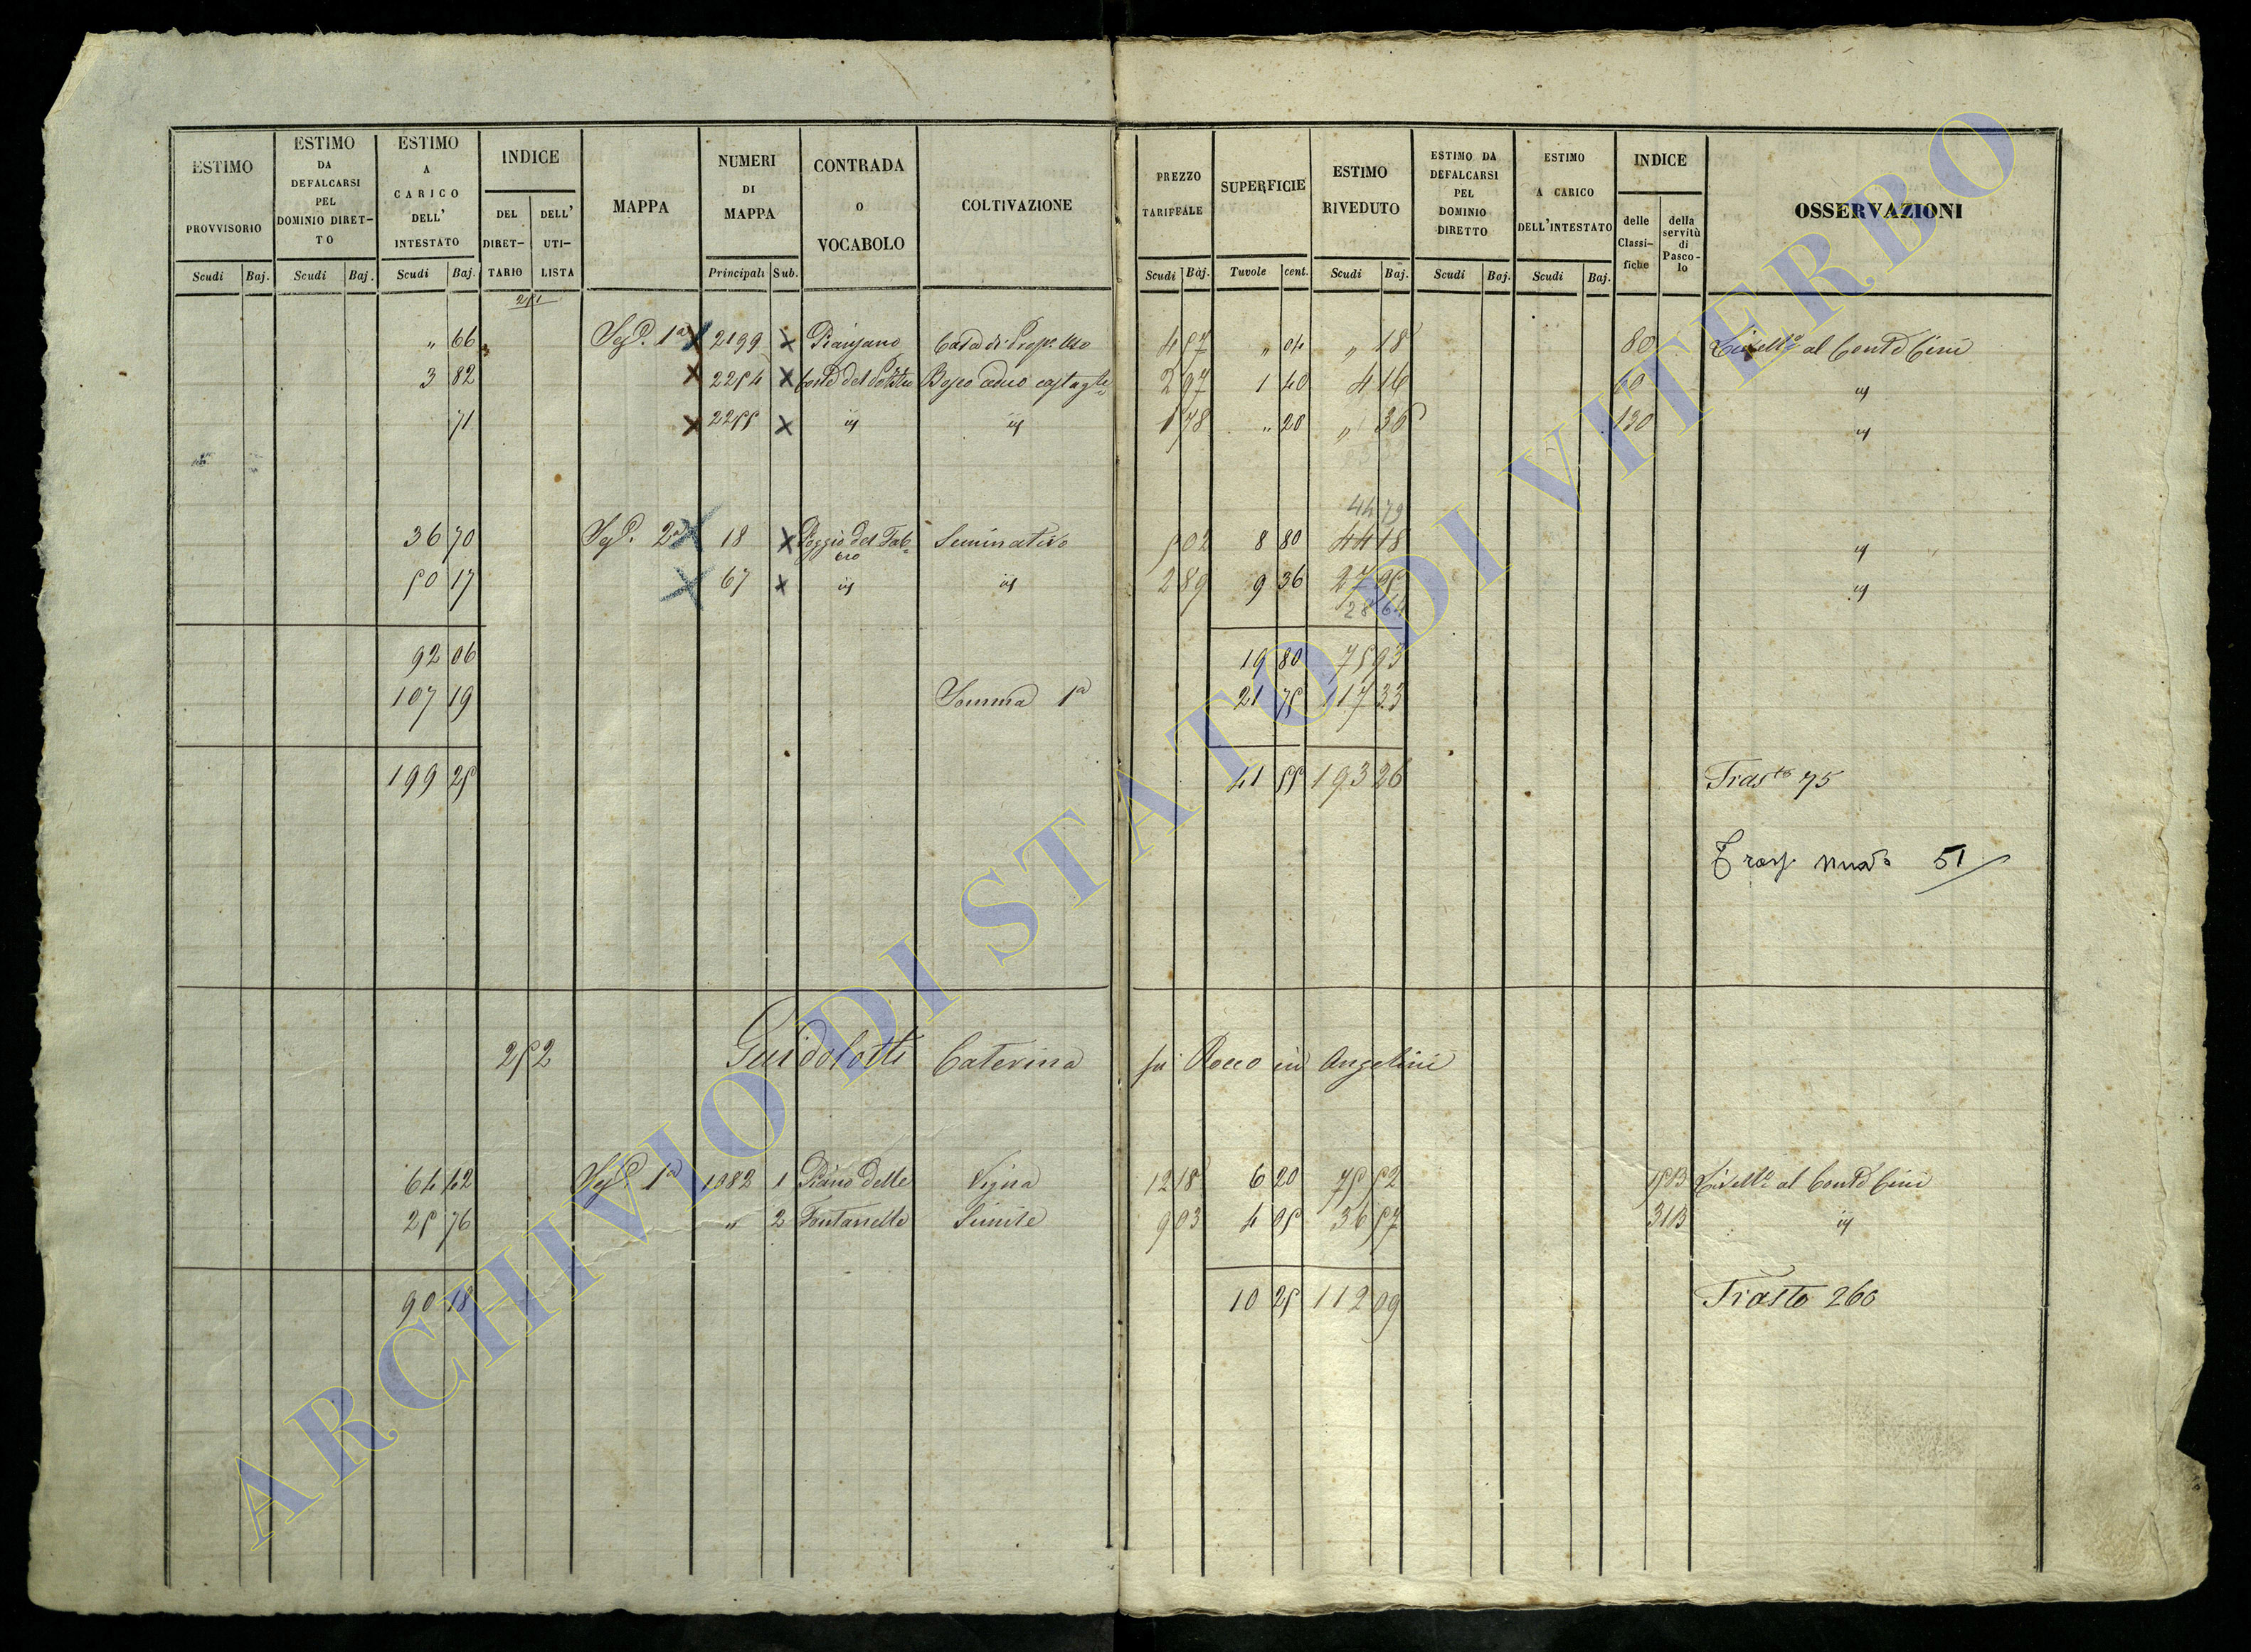 ESTIMO PROVVISORIO Scudi Baj.
ESTIMO DA DEFALCARSI PEL DOMINIO DIRET-TO Scudi Baj.
ESTIMO A CARICO DELL' INTESTATO Scudi Baj.
INDICE DEL DIRET-TARIO DELL' UTI-LISTA
MAPPA
NUMERI DI MAPPA Principali Sub.
CONTRADA O VOCABOLO
COLTIVAZIONE
PREZZO TARIFFALE Scudi Baj.
SUPERFICIE Tavole cent.
ESTIMO RIVEDUTO Scudi Baj.
ESTIMO DA DEFALCARSI PEL DOMINIO DIRETTO Scudi Baj.
ESTIMO A CARICO DELL'INTESTATO Scudi Baj.
INDICE delle Classi-fiche della servitù di Pasco-lo
OSSERVAZIONI
251
" 66 Sez. 1a 2199 Pianzano Casa di Prop. Uso 4 57 " 04 " 18 80 Livell. al Conte Cini
3 82 2254 Bosco ceduo 2 97 1 40 4 16 60 id
71 2255 id id 1 78 " 20 " 36 130 id
44 79
36 70 Sez. 2a 18 Poggio del Fab-bro Seminativo 5 02 8 80 44 18 id
50 17 67 id id 2 89 9 36 27 05 id
28 64
92 06 19 80 75 93
107 19 Somma 1a 21 75 117 33
199 25 41 55 193 26 Trasto 75
51
252 Guidolotti Caterina fu Rocco in Angelini
64 42 Sez. 1a 1082 1 Piano delle Vigna 12 18 6 20 75 52 Livell. al Conte Cini
25 76 " 2 Fontanelle Simile 9 03 4 05 36 57 id
90 18 10 25 112 09 Trasto 260
ARCHIVIO DI STATO DI VITERBO